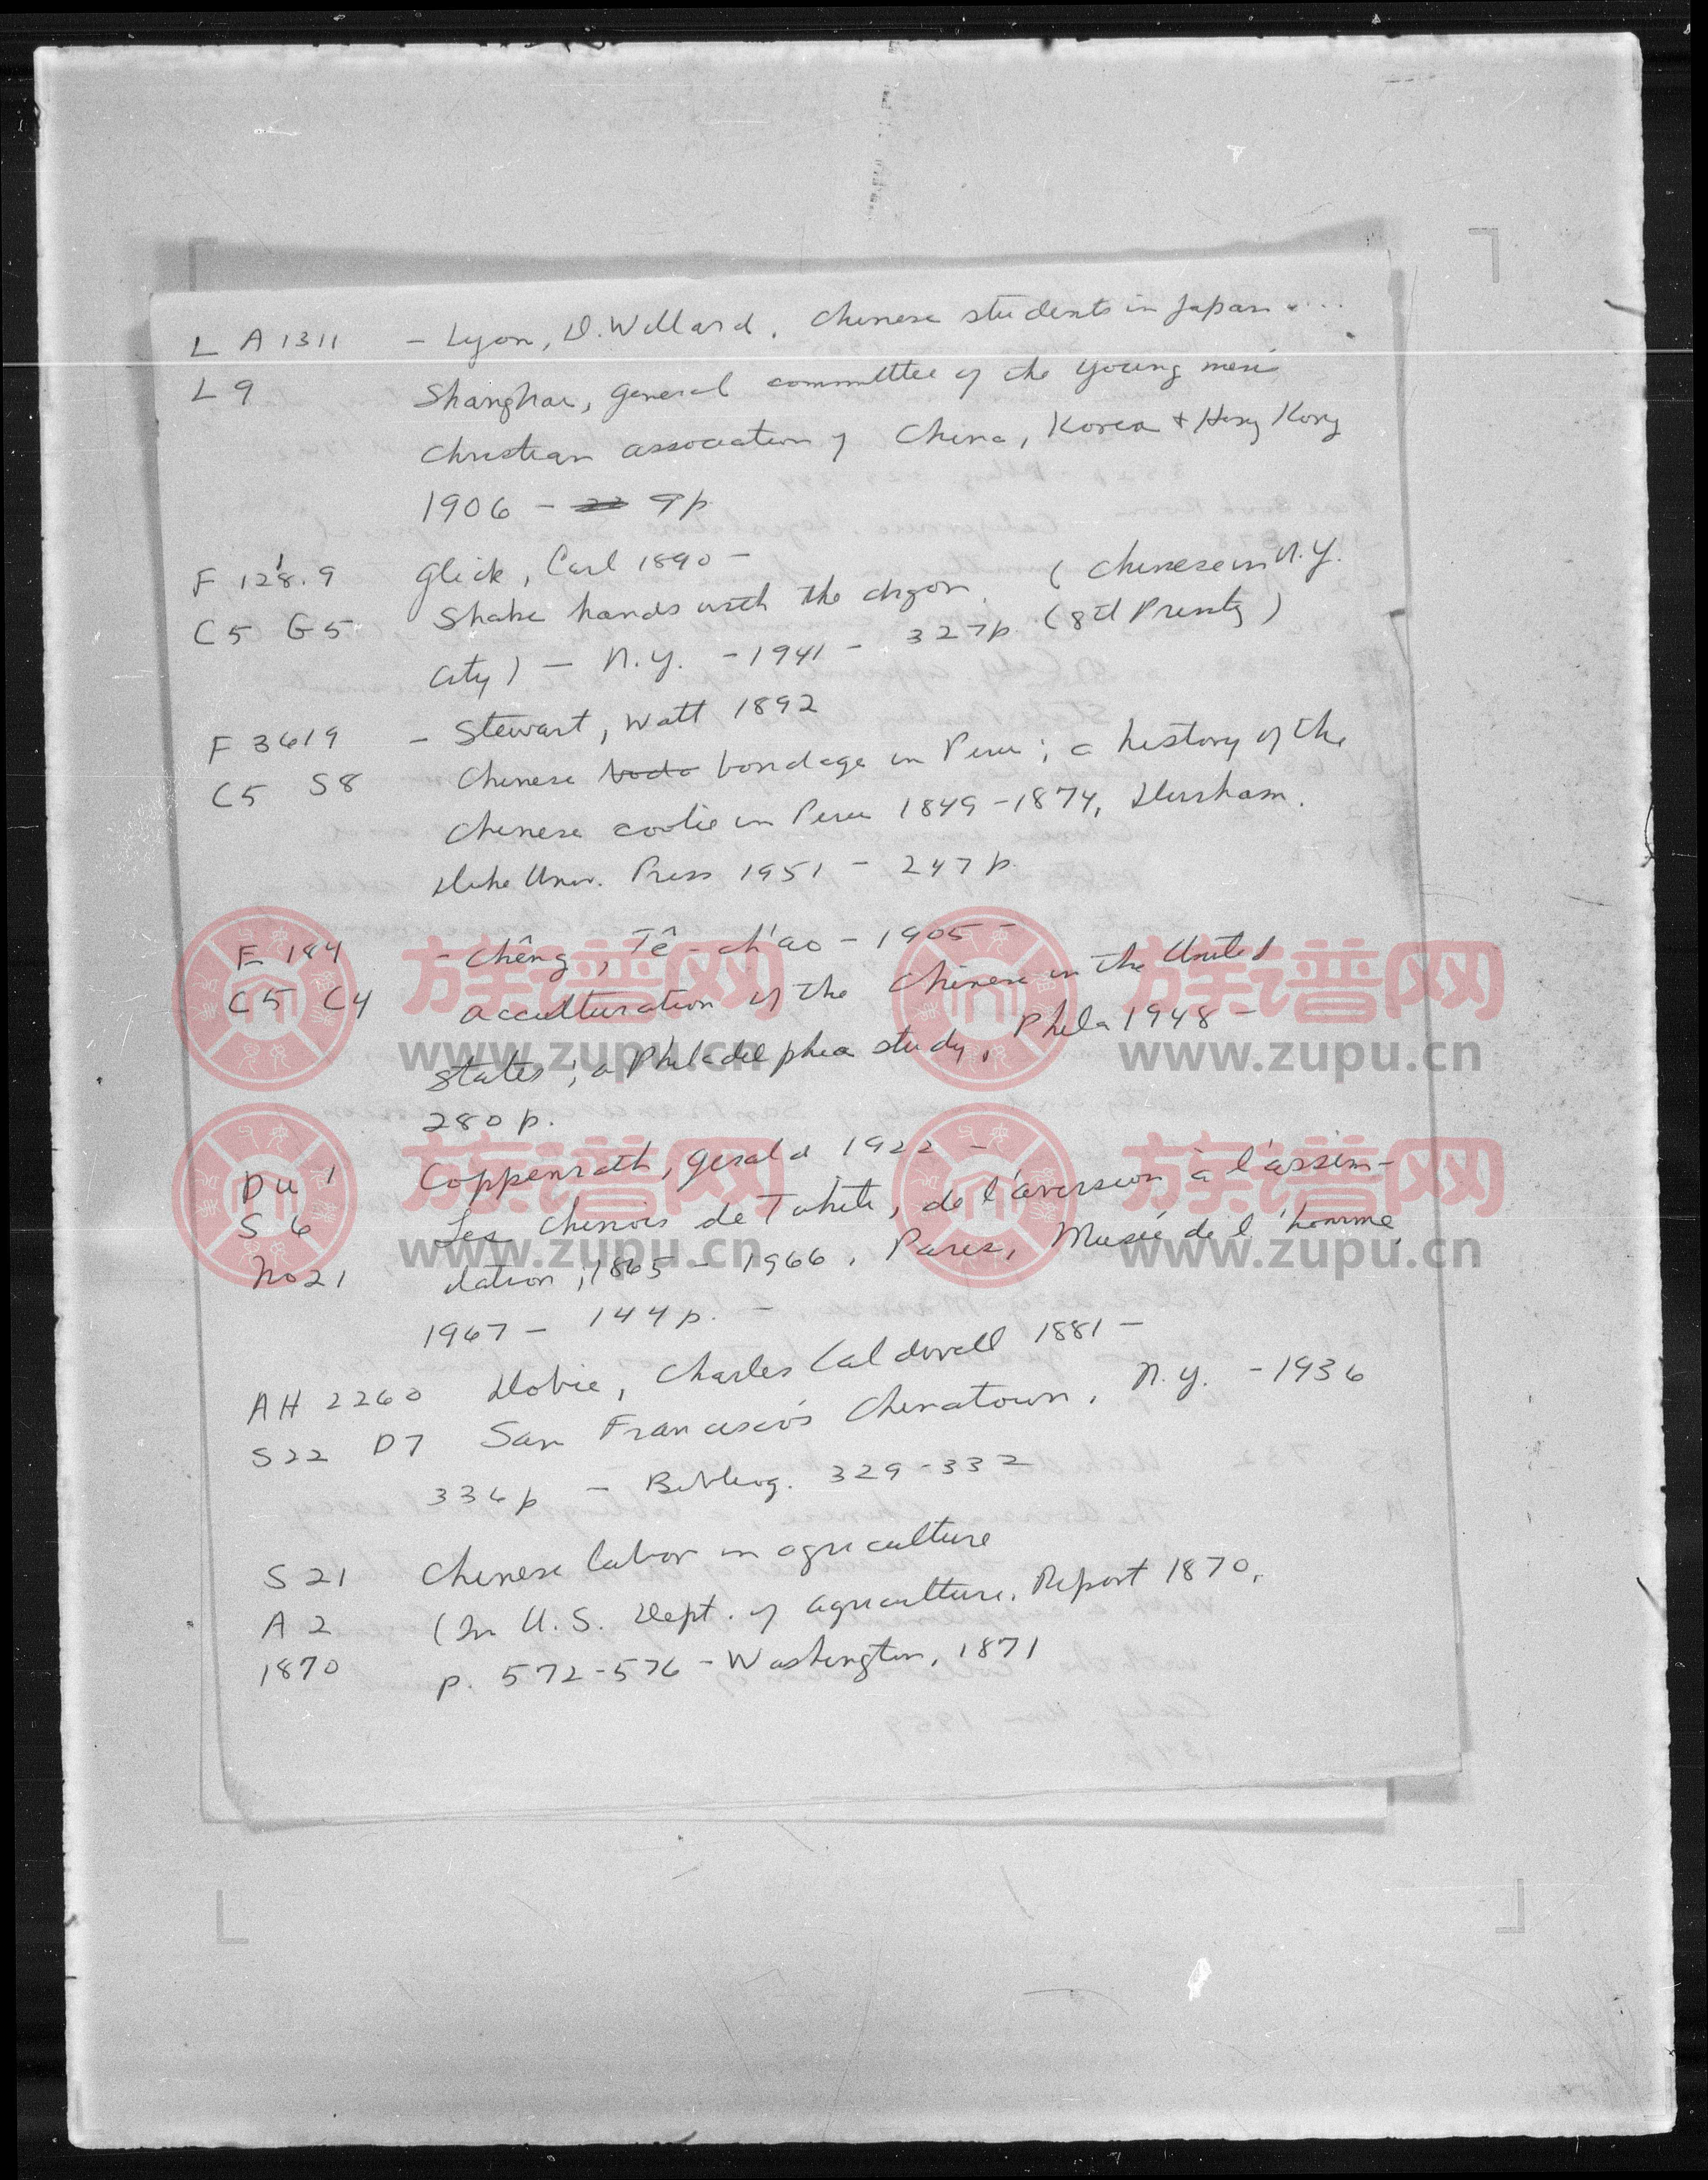 L A 1311 - Lyon, D. Willard. Chinese students in Japan ....
L 9 Shanghai, general committee of the young men's
Christian association of China, Korea + Hong Kong
1906 - 22 9p
F 128.9 Glick, Carl 1890 -
C5 G5 Shake hands with the dragon. ( Chinese in N.Y.
City ) - N.Y. - 1941 - 327p. (8th Printg )
F 3619 - Stewart, Watt 1892
C5 S8 Chinese bodo bondage in Peru ; a history of the
Chinese coolie in Peru 1849-1874, Durham.
Duke Univ. Press 1951 - 247 p.
E 184 - Chêng, Tê-ch'ao - 1905 -
C5 C4 Acculturation of the Chinese in the United
States ; a Philadelphia study, Phila 1948 -
280 p.
Du 1 Coppenrath, Gerald 1922 -
S 6 Les Chinois de Tahiti, de l'aversion à l'assim-
No 21 ilation, 1865 - 1966, Paris, Musée de l'homme,
1967 - 144 p. -
AH 2260 Dobie, Charles Caldwell 1881 -
S22 D7 San Francisco's Chinatown, N.Y. - 1936
336 p - Bibliog. 329-332
S 21 Chinese labor in agriculture
A 2 (In U.S. Dept. of agriculture. Report 1870,
1870 p. 572-576 - Washington, 1871
族谱网
www.zupu.cn
族谱网
www.zupu.cn
族谱网
www.zupu.cn
族谱网
www.zupu.cn